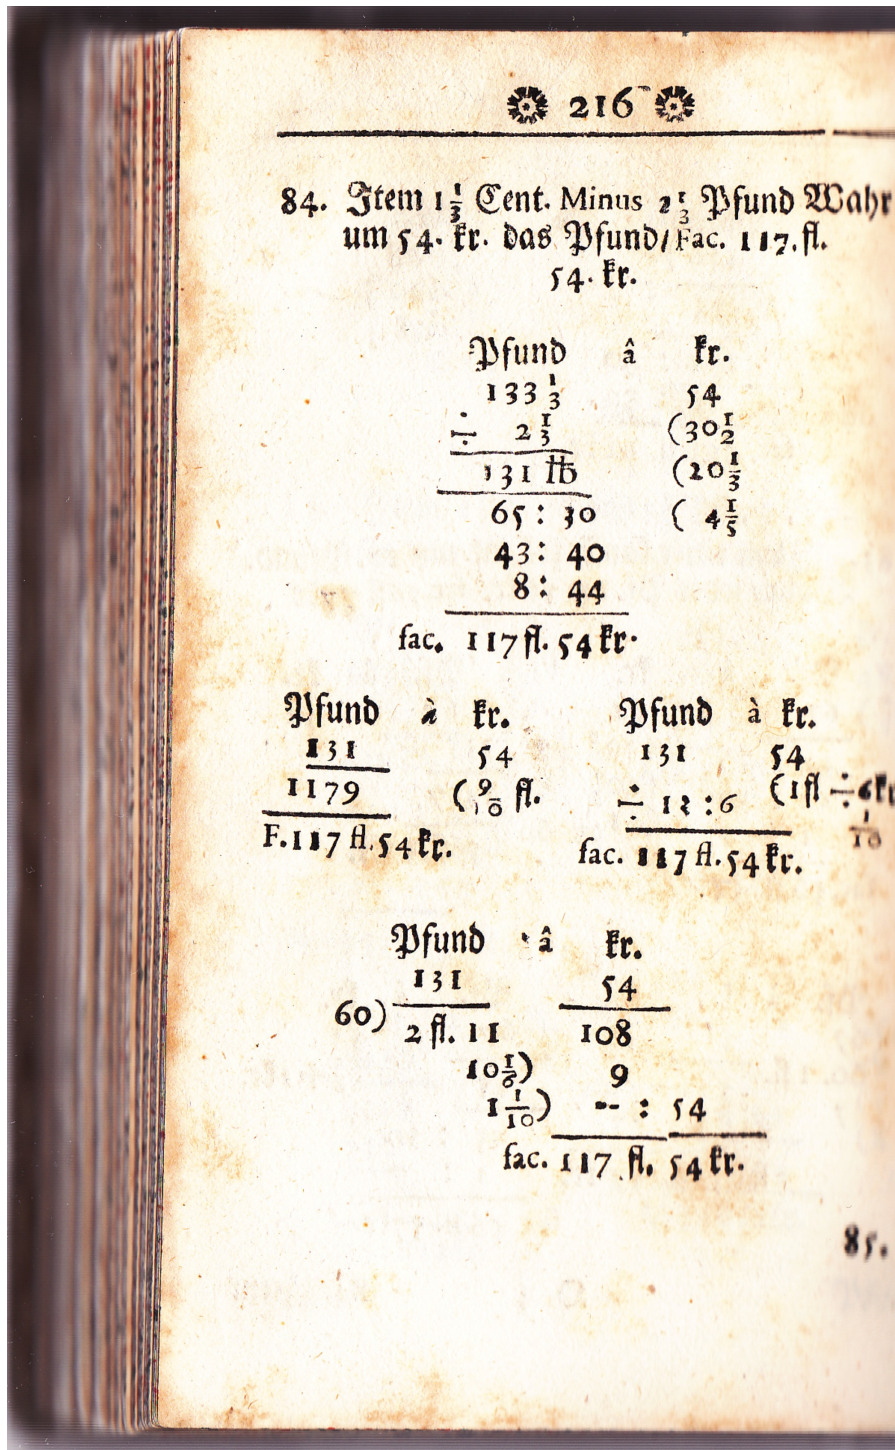 216
84. Item 1 1/3 Cent. Minus 2 1/3 Pfund Wahr
um 54. kr. das Pfund / Fac. 117. fl.
54. kr.
Pfund â kr.
133 1/3 54
÷ 2 1/3 (30 1/2
131 ℔ (20 1/3
65 : 30 ( 4 1/5
43 : 40
8 : 44
fac. 117 fl. 54 kr.
Pfund à kr.
131 54
1179 ( 9/10 fl.
F. 117 fl. 54 kr.
Pfund à kr.
131 54
÷ 13 : 6 (1 fl ÷ 6 kr
1/10
fac. 117 fl. 54 kr.
Pfund â kr.
131 54
60) 2 fl. 11 108
10 1/6) 9
1 1/10) -- : 54
fac. 117 fl. 54 kr.
85.